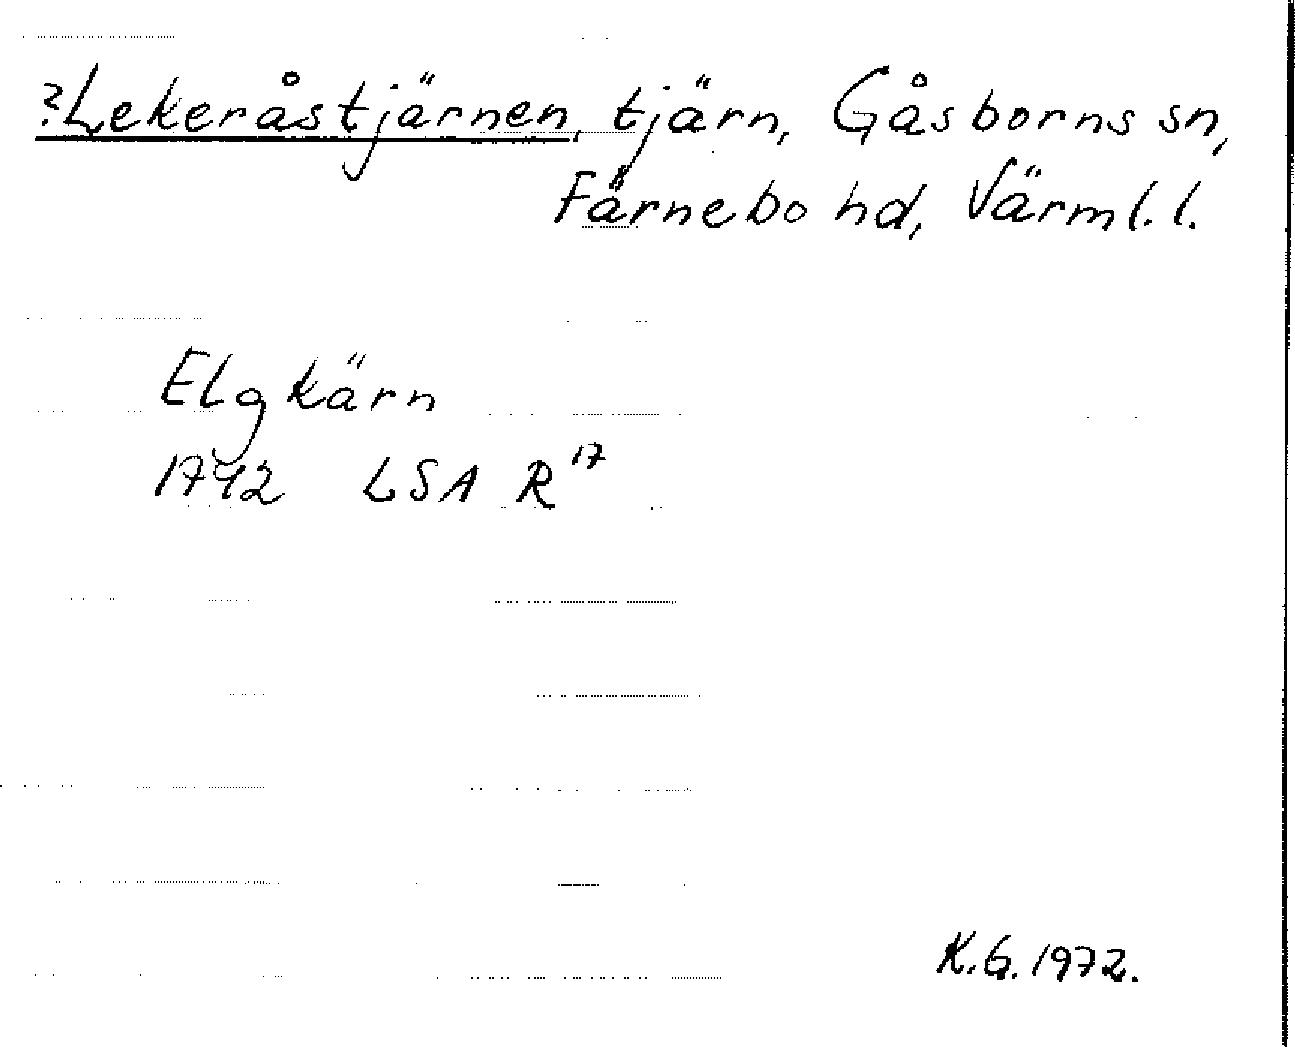 ?Lekeråstjärnen, tjärn, Gåsborns sn,
Färnebo hd, Värml. l.
Elgkärn
1742 LSA R¹⁷
K.G. 1972.